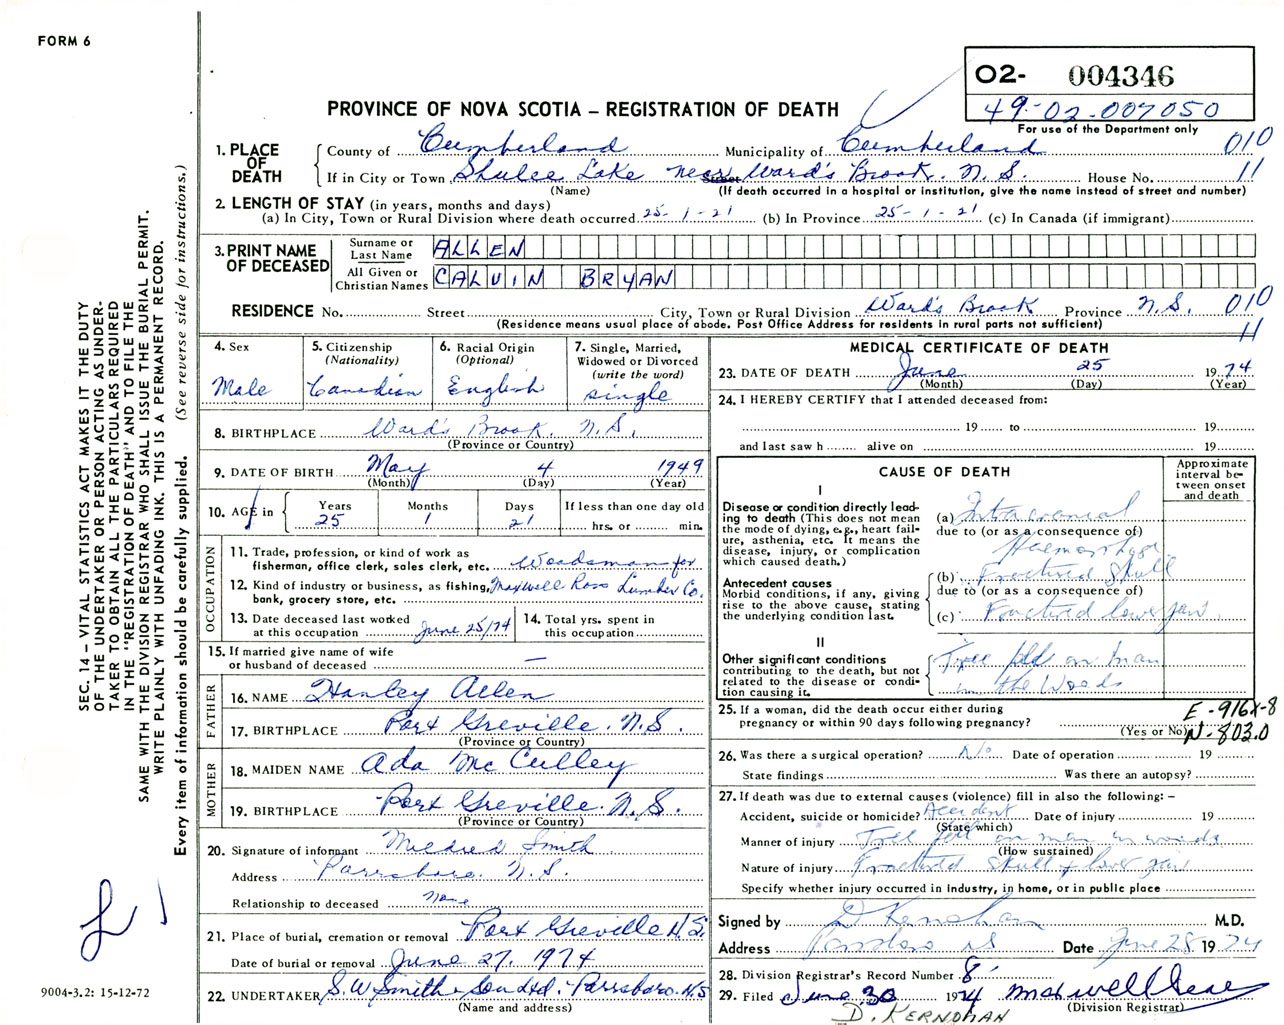 FORM 6
O2- 004346
49-02-007050
For use of the Department only
PROVINCE OF NOVA SCOTIA – REGISTRATION OF DEATH
1. PLACE OF DEATH
County of Cumberland Municipality of Cumberland 010
If in City or Town Shulee Lake near Ward's Brook. N.S. House No. 11
(Name) (If death occurred in a hospital or institution, give the name instead of street and number)
2. LENGTH OF STAY (in years, months and days)
(a) In City, Town or Rural Division where death occurred 25-1-21 (b) In Province 25-1-21 (c) In Canada (if immigrant)
3. PRINT NAME OF DECEASED
Surname or Last Name ALLEN
All Given or Christian Names CALVIN BRYAN
RESIDENCE No. Street City, Town or Rural Division Ward's Brook Province N.S. 010
(Residence means usual place of abode. Post Office Address for residents in rural parts not sufficient) 11
4. Sex
Male
5. Citizenship (Nationality)
Canadian
6. Racial Origin (Optional)
English
7. Single, Married, Widowed or Divorced (write the word)
single
8. BIRTHPLACE Ward's Brook. N.S.
(Province or Country)
9. DATE OF BIRTH May 4 1949
(Month) (Day) (Year)
10. AGE in Years 25 Months 1 Days 21 If less than one day old hrs. or min.
OCCUPATION
11. Trade, profession, or kind of work as fisherman, office clerk, sales clerk, etc. Woodsman for
12. Kind of industry or business, as fishing, bank, grocery store, etc. Maxwell Ross Lumber Co.
13. Date deceased last worked at this occupation June 25/74
14. Total yrs. spent in this occupation
15. If married give name of wife or husband of deceased —
FATHER
16. NAME Hanley Allen
17. BIRTHPLACE Port Greville. N.S.
(Province or Country)
MOTHER
18. MAIDEN NAME Ada McCulley
19. BIRTHPLACE Port Greville. N.S.
(Province or Country)
20. Signature of informant Mildred Smith
Address Parrsboro. N.S.
Relationship to deceased none
21. Place of burial, cremation or removal Port Greville N.S.
Date of burial or removal June 27, 1974
22. UNDERTAKER S.W. Smith & Son Ltd. Parrsboro. N.S
(Name and address)
MEDICAL CERTIFICATE OF DEATH
23. DATE OF DEATH June 25 1974
(Month) (Day) (Year)
24. I HEREBY CERTIFY that I attended deceased from:
19 to 19
and last saw h alive on 19
CAUSE OF DEATH
Approximate interval between onset and death
I
Disease or condition directly leading to death (This does not mean the mode of dying, e.g., heart failure, asthenia, etc. It means the disease, injury, or complication which caused death.)
(a) Intracranial
due to (or as a consequence of)
Haemorrhage
Antecedent causes
Morbid conditions, if any, giving rise to the above cause, stating the underlying condition last.
(b) Fractured Skull
due to (or as a consequence of)
(c) Fractured lower jaw
II
Other significant conditions contributing to the death, but not related to the disease or condition causing it.
Tree fell on man
in the Woods
25. If a woman, did the death occur either during pregnancy or within 90 days following pregnancy?
(Yes or No)
E-916X-8
N-803.0
26. Was there a surgical operation? No Date of operation 19
State findings Was there an autopsy?
27. If death was due to external causes (violence) fill in also the following: –
Accident, suicide or homicide? Accident Date of injury 19
(State which)
Manner of injury Tree fell on man in woods
(How sustained)
Nature of injury Fractured skull & lower jaw
Specify whether injury occurred in industry, in home, or in public place
Signed by D Kernohan M.D.
Address Parrsboro NS Date June 28 1974
28. Division Registrar's Record Number 8
29. Filed June 30 1974
(Division Registrar)
D. KERNOHAN
SEC. 14 – VITAL STATISTICS ACT MAKES IT THE DUTY
OF THE UNDERTAKER OR PERSON ACTING AS UNDER-
TAKER TO OBTAIN ALL THE PARTICULARS REQUIRED
IN THE "REGISTRATION OF DEATH" AND TO FILE THE
SAME WITH THE DIVISION REGISTRAR WHO SHALL ISSUE THE BURIAL PERMIT.
WRITE PLAINLY WITH UNFADING INK. THIS IS A PERMANENT RECORD.
Every item of information should be carefully supplied. (See reverse side for instructions.)
9004-3.2: 15-12-72